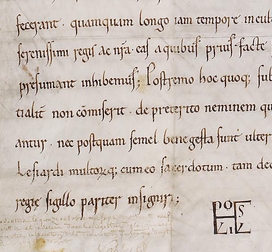 fecerant. quamquam longo iam tempore incul
serenissimi regis ac nr̄a. eas a quibus prius facte
presumant inhibemus; Postremo hoc quoq; sub
tialit̄ non cōmiserit. de preterito neminem qu
antur. nec postquam semel bene gesta sunt ulter
Lesiardi multorq; cum eo sacerdotum. tam dec
regis sigillo pariter insignir;